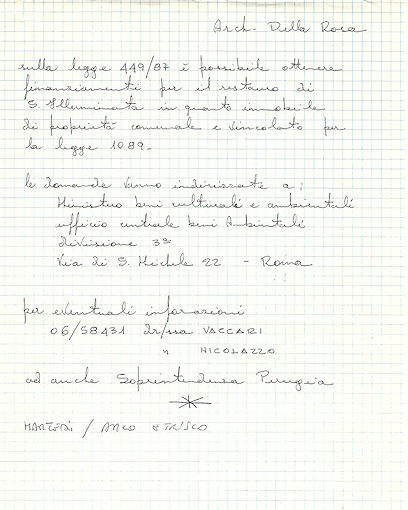 Arch. Della Rosa
sulla legge 449/87 è possibile ottenere
finanziamenti per il restauro di
S. Illuminata in quanto immobile
di proprietà comunale e vincolato per
la legge 1089.
le domande vanno indirizzate a:
Ministero beni culturali e ambientali
ufficio centrale beni Ambientali
divisione 3ª
Via di S. Michele 22 - Roma
per eventuali informazioni
06/58431 dr/ssa VACCARI
" NICOLAZZO
ad anche Soprintendenza Perugia
/ ARCO ETRUSCO